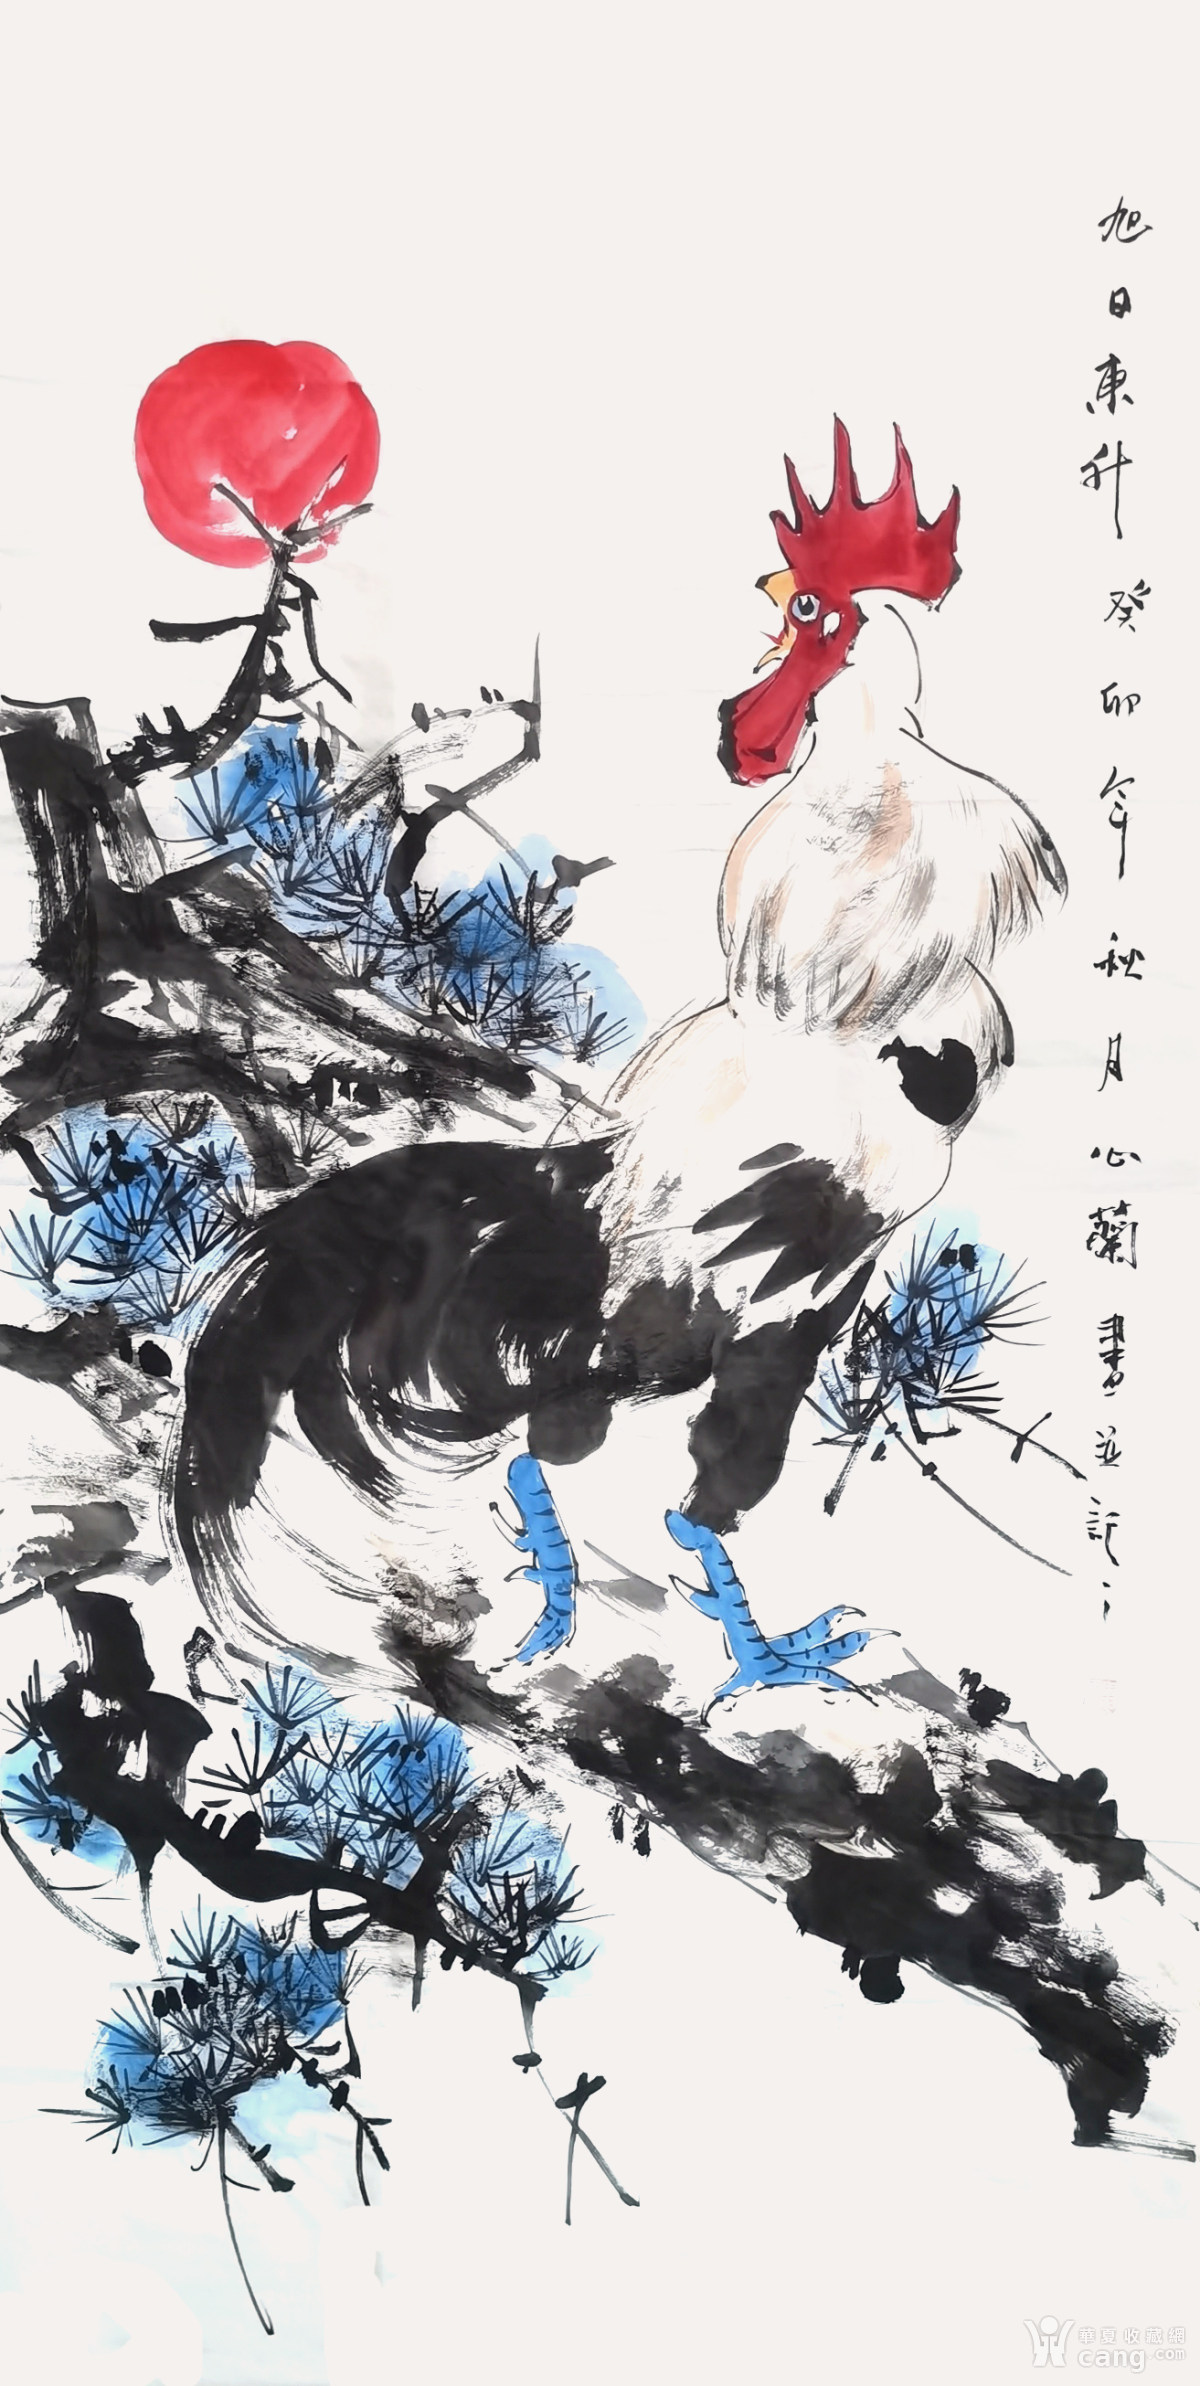 旭日東升癸卯年秋月心蘭畫並記
華夏收藏網
cang.com